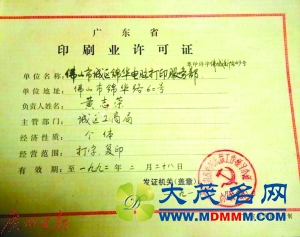 广东省
印刷业许可证
单位名称 佛山市城区锦华电脑打印服务部
单位地址 佛山市锦华路62号
负责人姓名 黄志荣
主管部门 城区工商局
经济性质 个体
经营范围 打字、复印
有效期 至一九九二年二月二十八日
发证机关(盖章)
大茂名网
WWW.MDMMM.COM